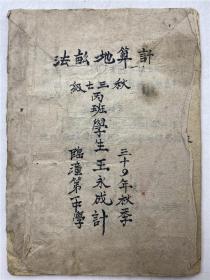 計算地畝法
秋三七級
丙班學生王永成計
三十9年秋季
臨潼第一中學